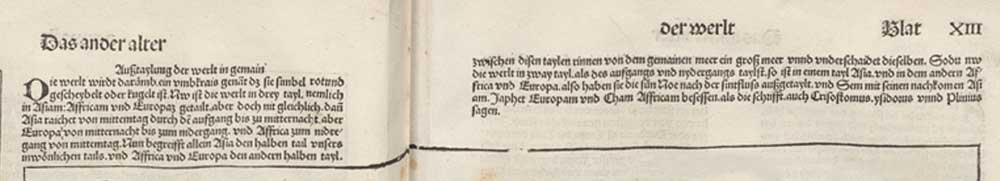 Das ander alter
Außtaylung der werlt in gemain
Die werlt wirdt darumb ein vmbkrais genãt dz sie sinbel rotund
gescheybelt oder kugelt ist. Nw ist die werlt in drey tayl. nemlich
in Asiam: Affricam vnd Europaz getailt. aber doch nit gleichlich. dañ
Asia raichet von mittentag durch dẽ aufgang bis zu mitternacht. aber
Europa von mitternacht bis zum nidergang. vnd Affrica zum nider-
gang von mittentag. Nun begreifft allein Asia den halben tail vnsers
inwönlichen tails. vnd Affrica vnd Europa den andern halben tayl.
der werlt
Blat XIII
zwischen disen taylen rinnen von dem gemainen meer ein groß meer vnnd vnderschaidet dieselben. Sodu nw
die werlt in zway tayl. als des aufgangs vnd nydergangs taylst. so ist in einem tayl Asia. vnd in dem andern Af
frica vnd Europa. also haben sie die sün Noe nach der sintfluss außgetaylt. vnd Sem mit seinen nachkomen Asi
am. Japhet Europam vnd Cham Affricam besessen. als die schrifft. auch Crisostomus. ysidorus vnnd Plinius
sagen.